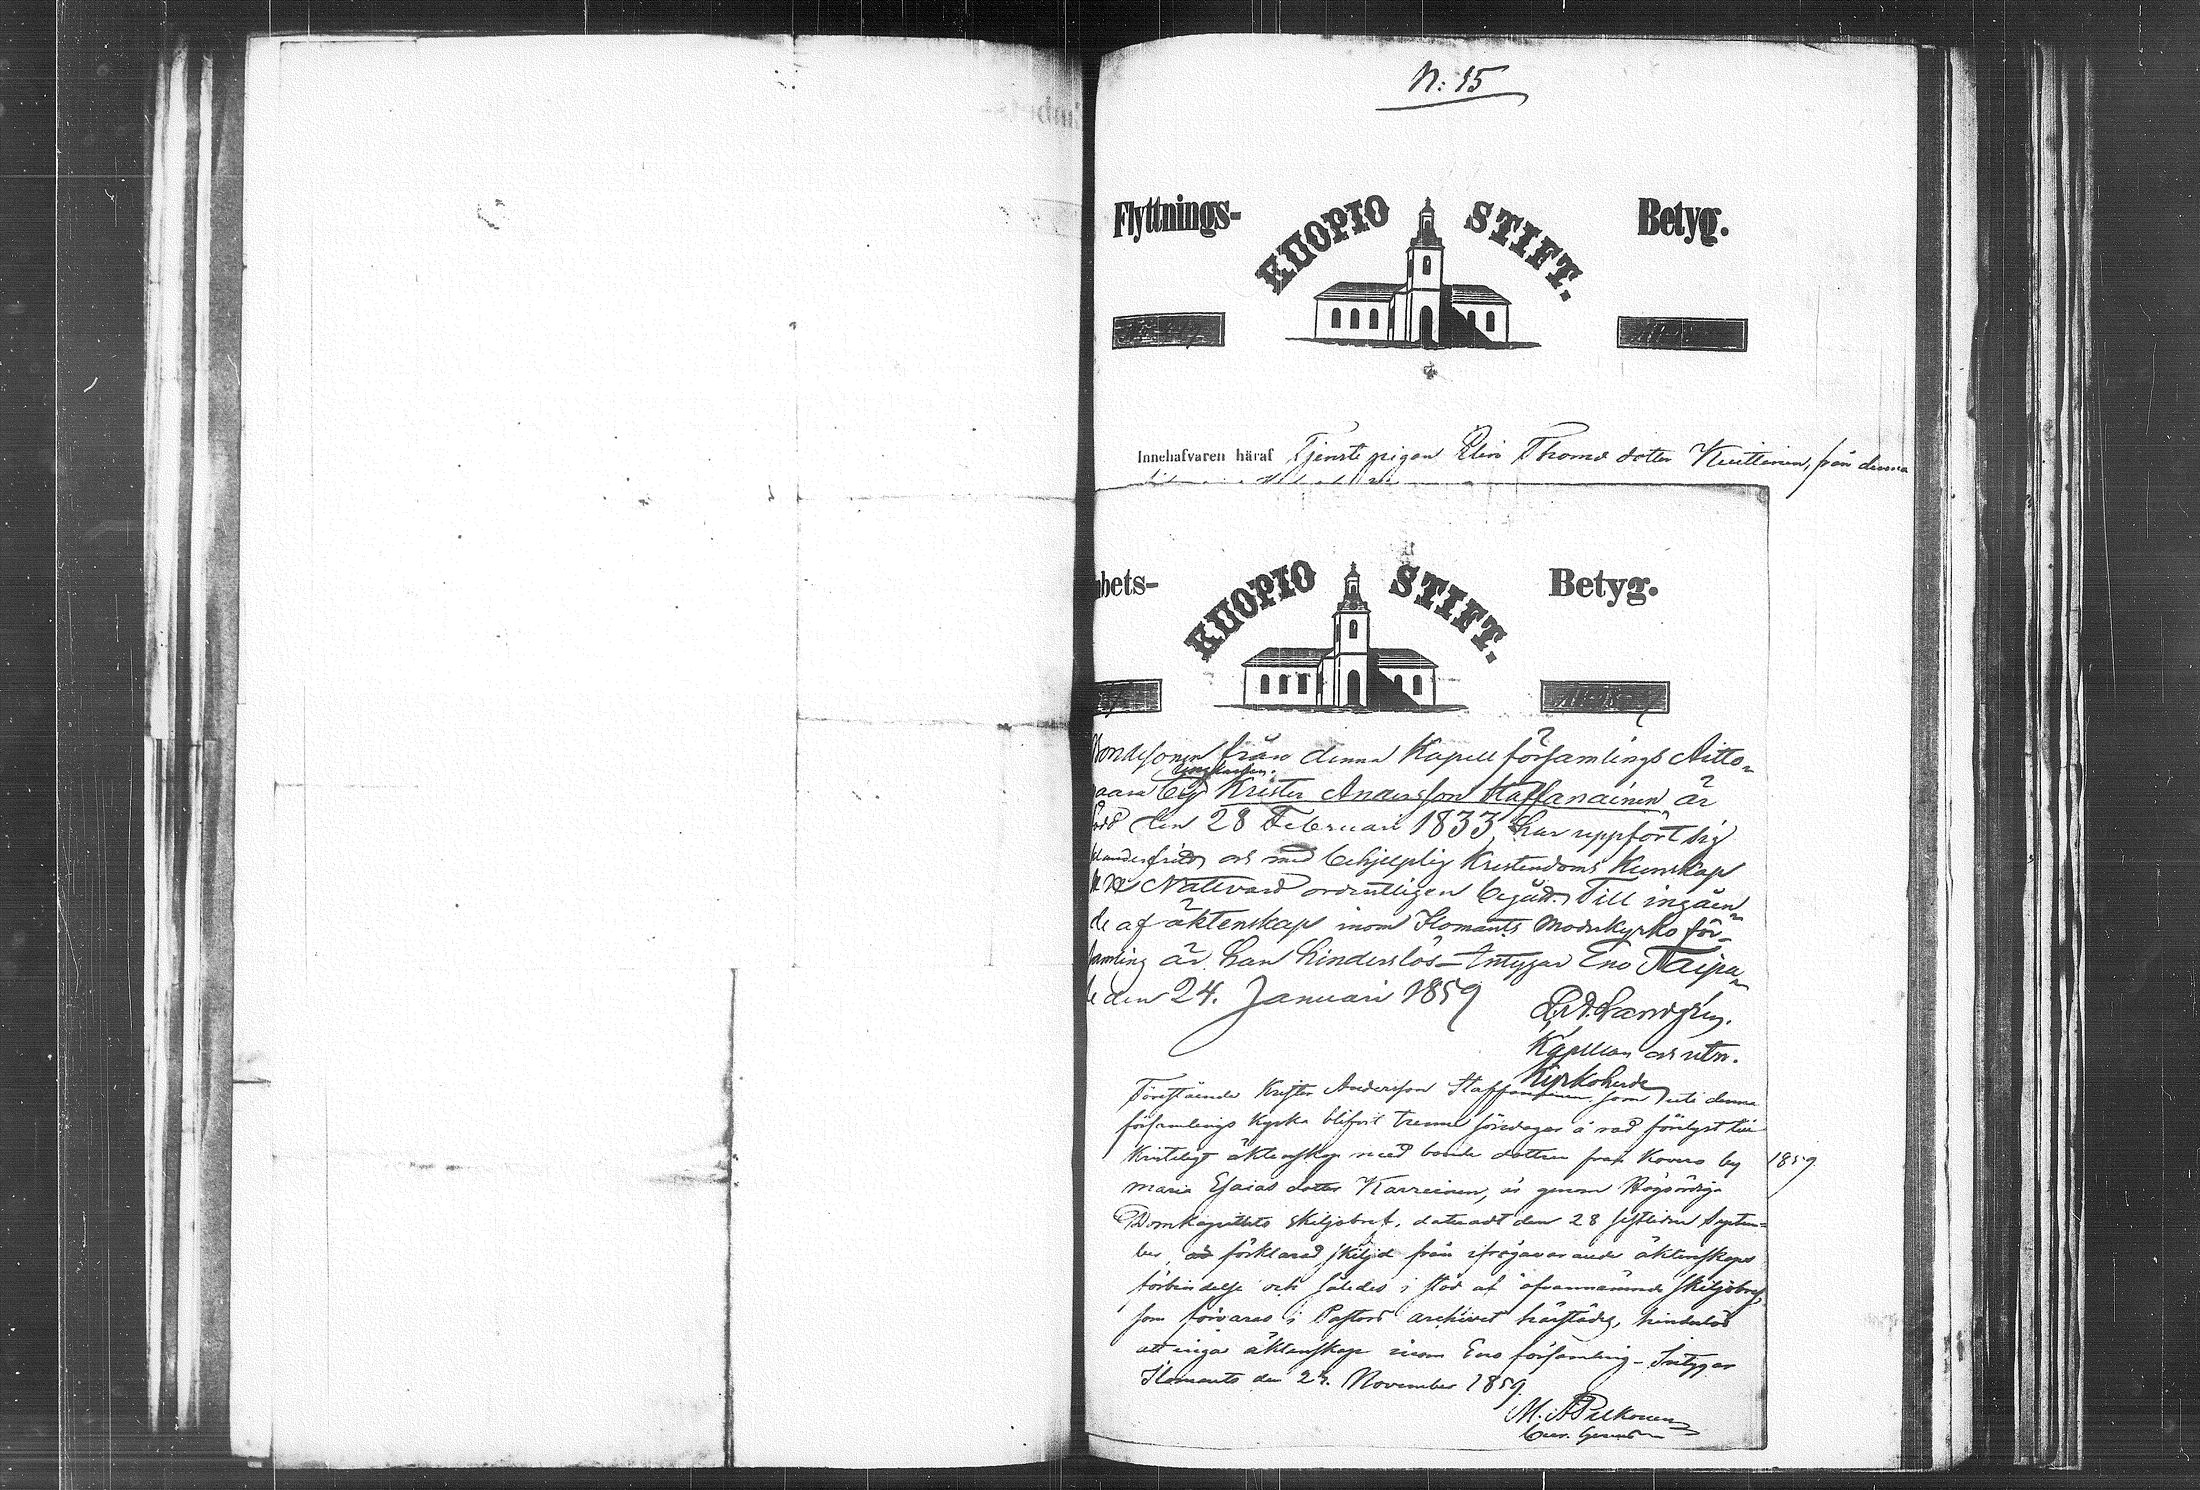 N: 15
Flyttnings- KUOPIO STIFT. Betyg.
Innehafvaren häraf Tjenstepigan Elin Thomæ dotter Kuittinen, från denna
bets- KUOPIO STIFT. Betyg.
Bondesonen från denna Kapell församlings Aitto-
vaara by Ungkarlen Krister Andersson Staffanainen är
född den 28 Februari 1833, har uppfört sig
klanderfritt och med behjelplig Kristendoms Kunskap
H. H. Nattvard ordentligen begått. Till ingåen-
de af äktenskap inom Ilomants Moderkyrko för-
samling är han hinderslös – Intygar Eno Taipa-
le den 24. Januari 1859
Landgrén.
Kapellan och utn.
Kyrkoherde
Förestående Krister Andersson Staffanainen som uti denna
församlings Kyrka blifvit trenne söndagar å rad förlyst till
Kristeligt äktenskap med bonde dottren från Kovero by 1859
Maria Esaias dotter Karreinen, är genom Högvördiga
Domkapitlets skiljobref, dateradt den 28 sistliden Septem-
ber, förklarad skiljd från ifrågavarande äktenskaps
förbindelse och således i stöd af ofvannämnde skiljobref,
som förvaras i Pastors archivet härstädes, hinderlös
att ingå äktenskap inom Eno församling – Intygar
Ilomants den 24. November 1859.
M. A. Pelkonen